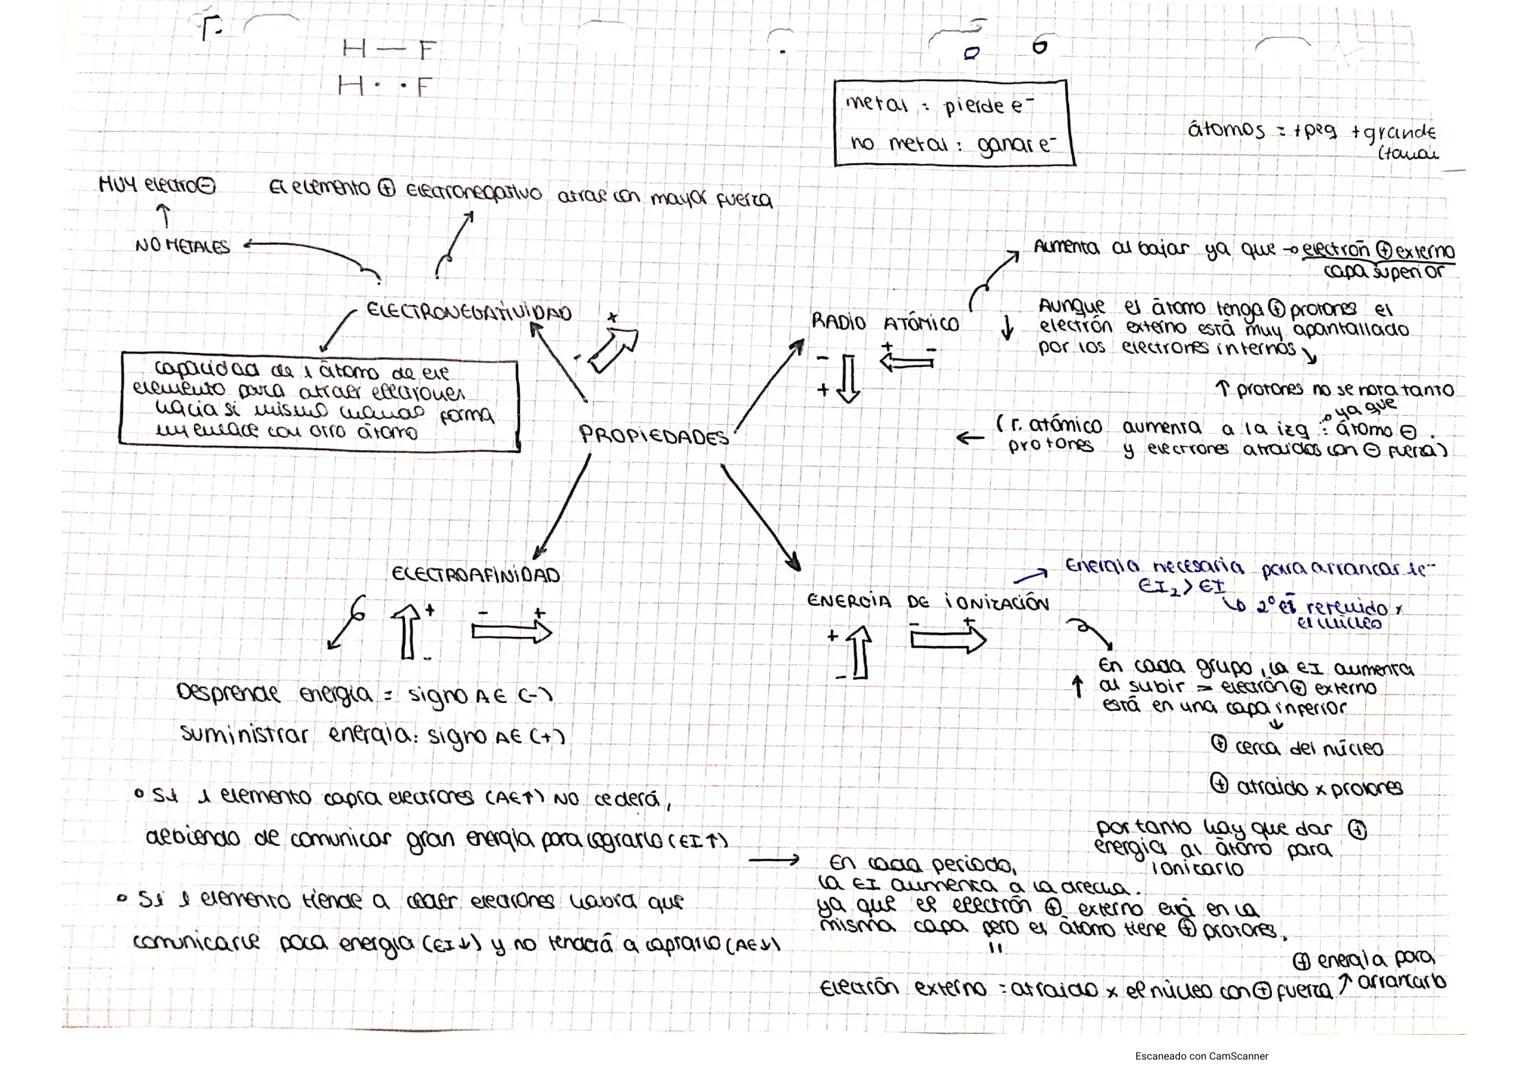 H — F
H · · F
metal : pierde e⁻
no metal : ganar e⁻
átomos = +peq +grande
MUY electro⊖
El elemento ⊕ electronegativo atrae con mayor fuerza
NO METALES
ELECTRONEGATIVIDAD
+
-
capacidad de 1 átomo de ese
elemento para atraer electrones
hacia si mismo cuando forma
un enlace con otro átomo
PROPIEDADES
RADIO ATÓMICO
- + -
+
Aumenta al bajar ya que → electrón ⊕ externo
capa superior
↓ Aunque el átomo tenga ⊕ protones el
electrón externo está muy apantallado
por los electrones internos
↑ protones no se nota tanto
ya que
← (r. atómico aumenta a la izq : átomo ⊖
protones y electrones atraidos con ⊖ fuerza)
ELECTROAFINIDAD
+ - +
-
Desprende energía = signo AE (-)
suministrar energía: signo AE (+)
• Si 1 elemento capta electrones (AE↑) NO cederá,
debiendo de comunicar gran energía para lograrlo (EI↑)
• Si 1 elemento tiende a ceder electrones habrá que
comunicarle poca energía (EI↓) y no tenderá a captarlo (AE↓)
ENERGÍA DE IONIZACIÓN
+ - +
-
Energía necesaria para arrancar 1e⁻
EI₂ > EI
2º e⁻ retenido x
el núcleo
En cada grupo, la EI aumenta
↑ al subir = electrón ⊕ externo
está en una capa inferior
↓
⊕ cerca del núcleo
⊕ atraido x protones
por tanto hay que dar ⊕
energía al átomo para
ionizarlo
→ En cada periodo,
la EI aumenta a la drecha.
ya que el electrón ⊕ externo está en la
misma capa pero el átomo tiene ⊕ protones.
"
⊕ energía para
arrancarlo
Electrón externo = atraido x el núcleo con ⊕ fuerza ↑
Escaneado con CamScanner